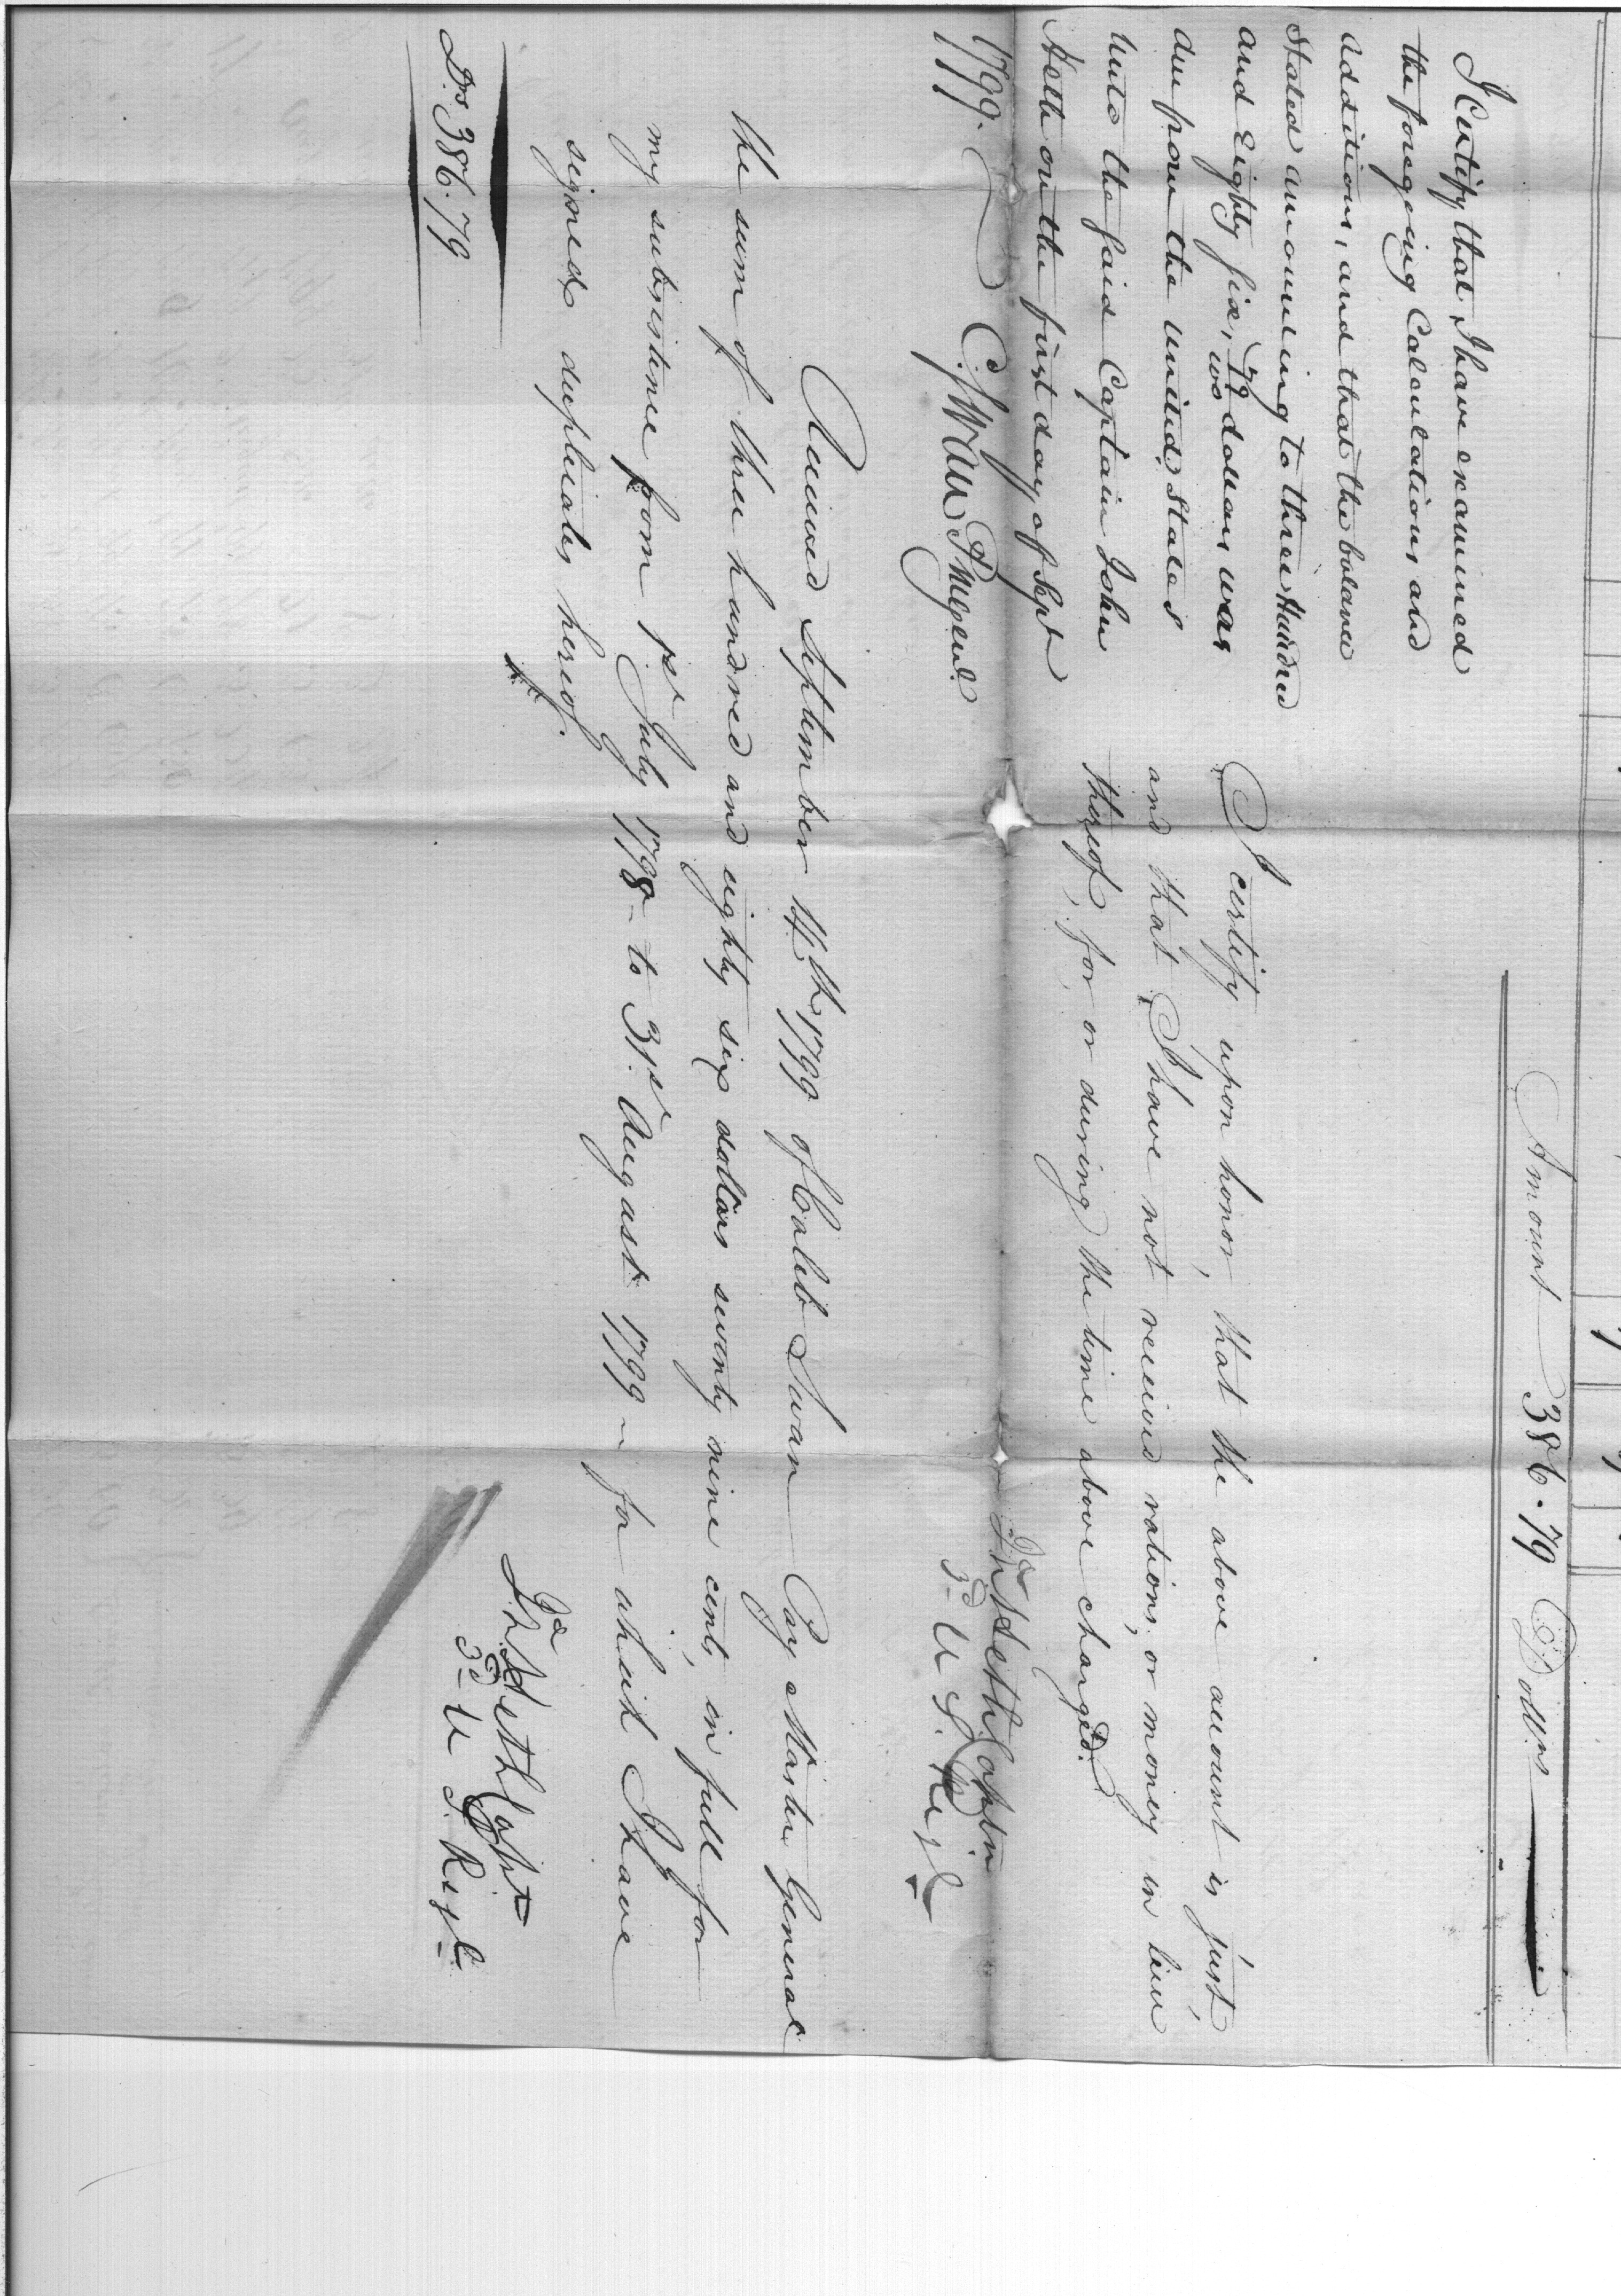 Amount 386.79 Dollrs
I Certify that I have examined
the foregoing Calculations and
additions, and that the balance
Stated amounting to three Hundred
and Eighty six, 79/100 dollars was
due from the United States
unto the said Captain John
Heth on the first day of Sept
1799.
C. Swan P M Genl.
I certify upon honor, that the above account is just,
and that I have not received rations, or money in lieu
thereof, for, or during the time above charged.
Jn Heth Captn
3d U S. Regt
Received September 14th 1799 of Caleb Swan Pay Master General
the sum of three hundred and eighty six dollars seventy nine cents, in full for
my subsistence from 1st July 1798 - to 31st August 1799 - for which I have
signed duplicates hereof.
Ds. 386.79
Jn Heth Capt
3d U S. Regt